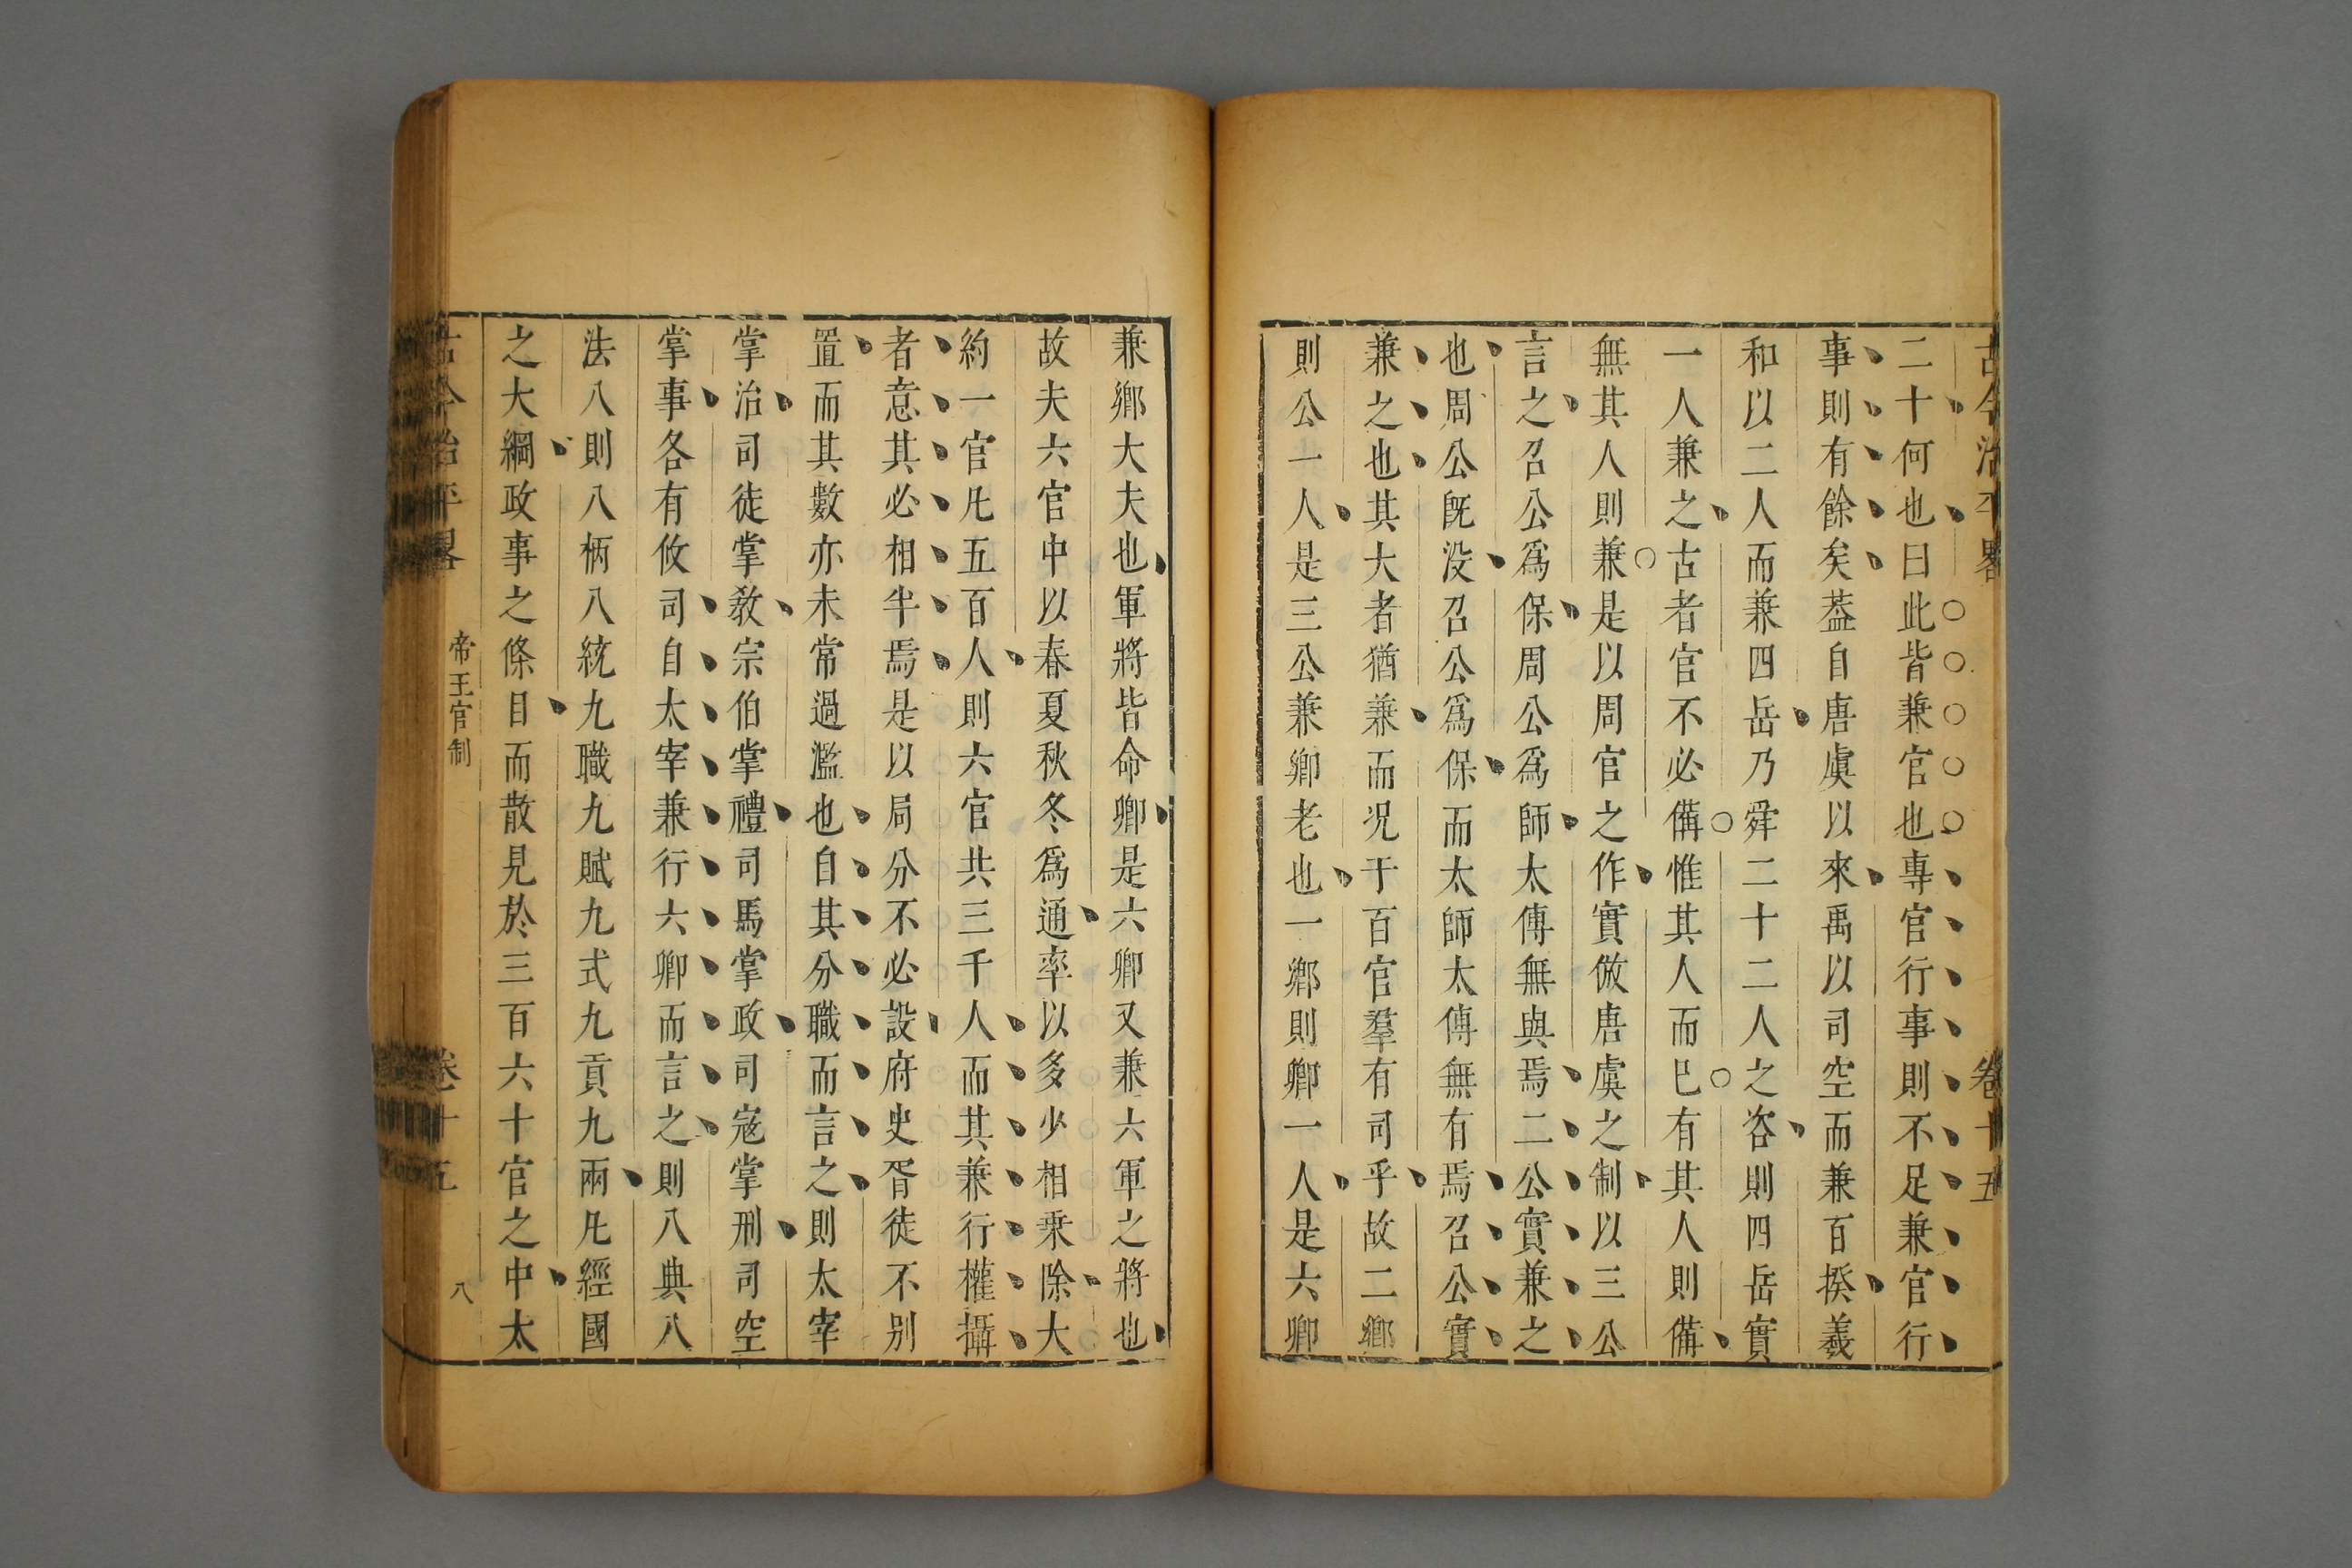 古今治平畧 卷十五
二十何也曰此皆兼官也專官行事則不足兼官行
事則有餘矣葢自唐虞以來禹以司空而兼百揆羲
和以二人而兼四岳乃舜二十二人之咨則四岳實
一人兼之古者官不必備惟其人而巳有其人則備
無其人則兼是以周官之作實倣唐虞之制以三公
言之召公爲保周公爲師太傅無與焉二公實兼之
也周公旣没召公爲保而太師太傅無有焉召公實
兼之也其大者猶兼而况于百官羣有司乎故二鄕
則公一人是三公兼卿老也一鄕則卿一人是六卿
兼鄕大夫也軍將皆命卿是六卿又兼六軍之將也
故夫六官中以春夏秋冬爲通率以多少相乗除大
約一官凡五百人則六官共三千人而其兼行權攝
者意其必相半焉是以局分不必設府史胥徒不别
置而其數亦未常過濫也自其分職而言之則太宰
掌治司徒掌敎宗伯掌禮司馬掌政司寇掌刑司空
掌事各有攸司自太宰兼行六卿而言之則八典八
法八則八柄八統九職九賦九式九貢九兩凡經國
之大綱政事之條目而散見於三百六十官之中太
古今治平畧 帝王官制 卷十五 八